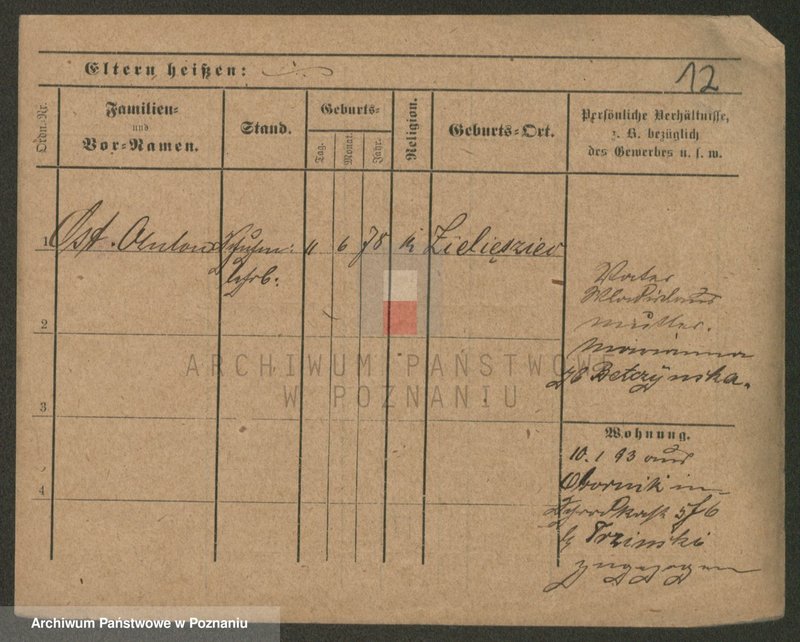 Eltern heißen:
12
Ordn.-Nr.
Familien-
und
Vor-Namen.
Stand.
Geburts-
Tag.
Monat.
Jahr.
Religion.
Geburts-Ort.
Persönliche Verhältnisse,
z. B. bezüglich
des Gewerbes u. s. w.
1
Ost. Anton
Schuhm:
lehrl.
11
6
78
k
2
3
4
Vater
mutter.
Marianna
Betczynska.
ARCHIWUM PAŃSTWOWE
W POZNANIU
Wohnung.
10.1 93 aus
Obornik in
5/6
b Trzinski
zugezogen
Archiwum Państwowe w Poznaniu